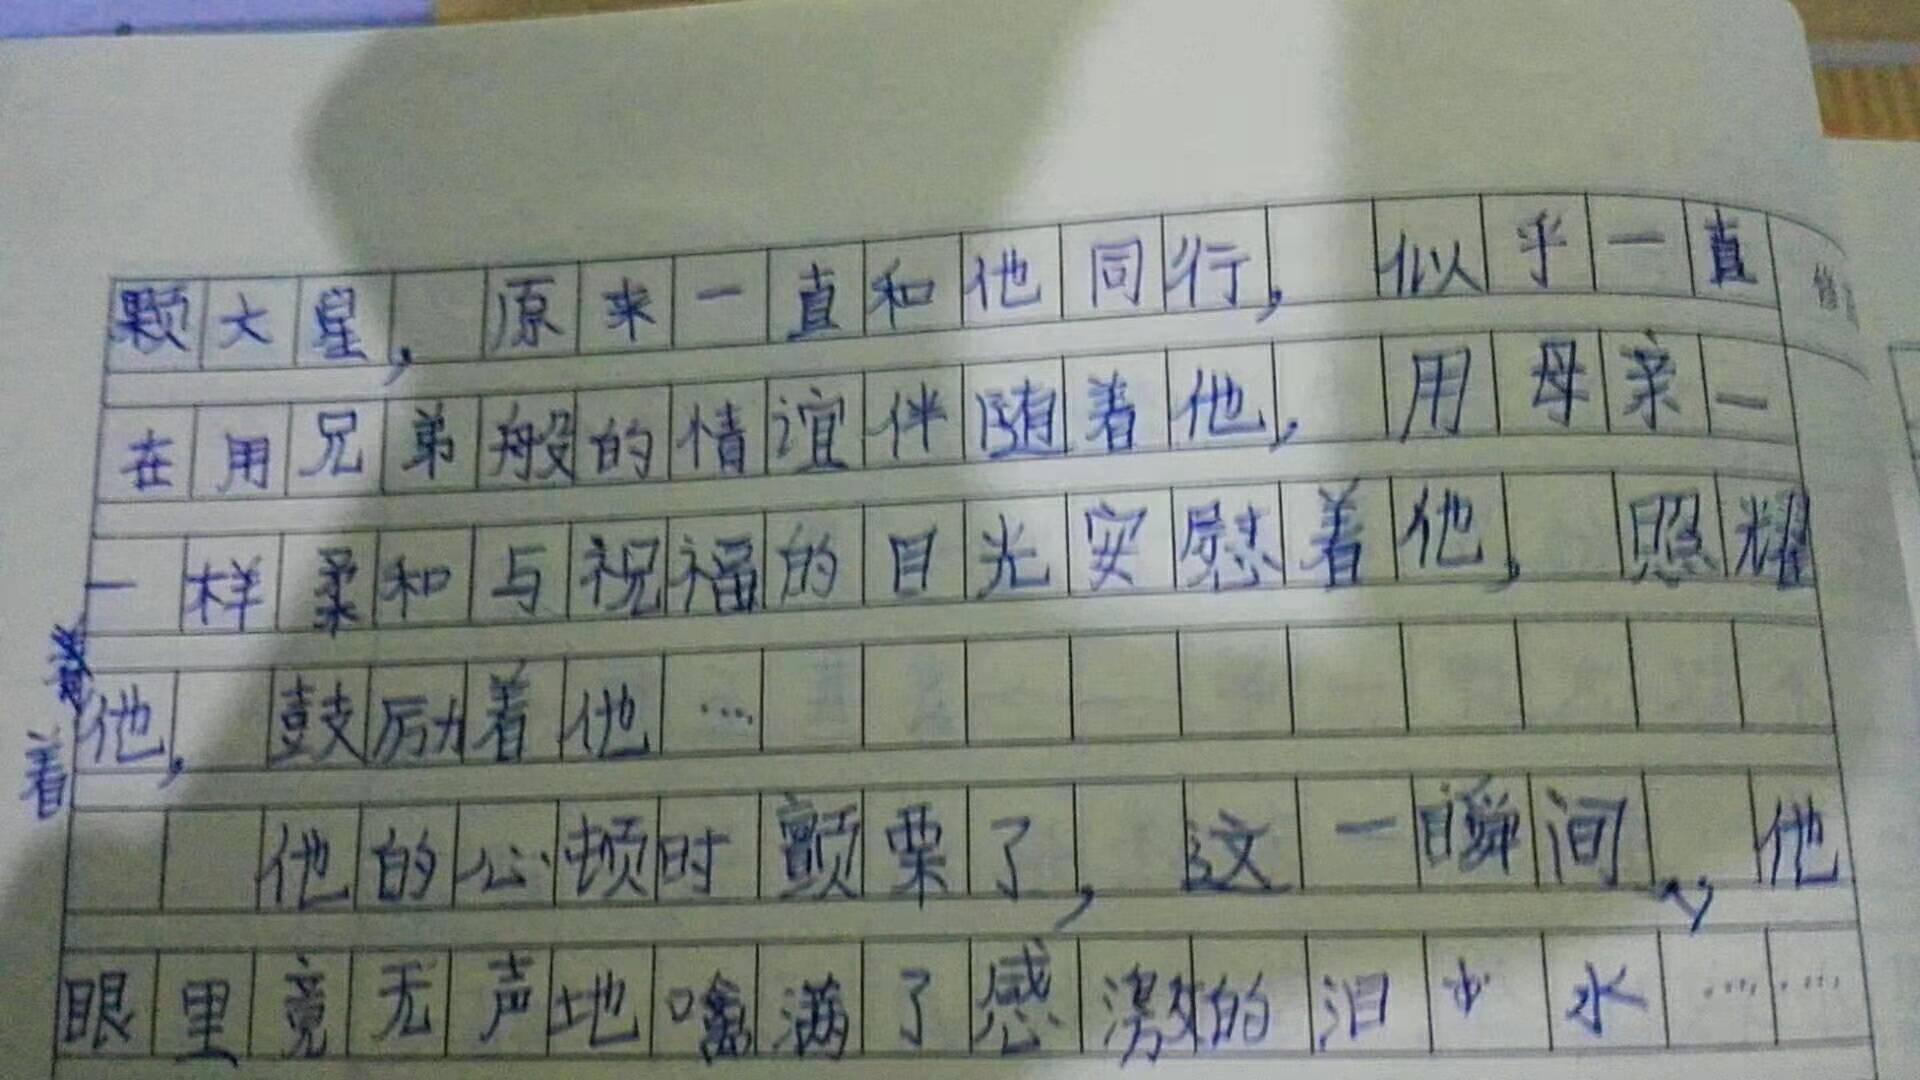 颗大星，原来一直和他同行，似乎一直
在用兄弟般的情谊伴随着他，用母亲一
一样柔和与祝福的目光安慰着他，照耀
着他，鼓励着他…
他的心顿时颤栗了，这一瞬间，他
眼里竟无声地噙满了感激的泪水……